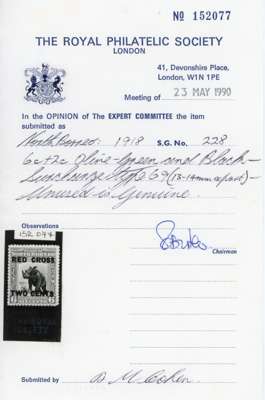 No 152077
THE ROYAL PHILATELIC SOCIETY
LONDON
41, Devonshire Place,
London, W1N 1PE
Meeting of 23 MAY 1990
In the OPINION of The EXPERT COMMITTEE the item
submitted as
North Borneo: 1918 S.G. No. 228
6c+2c Olive-Green and Black -
Surcharge Type 69 (13-14mm apart) -
Unused is Genuine.
Observations
RED CROSS
TWO CENTS
Chairman
Submitted by M. Cohen.